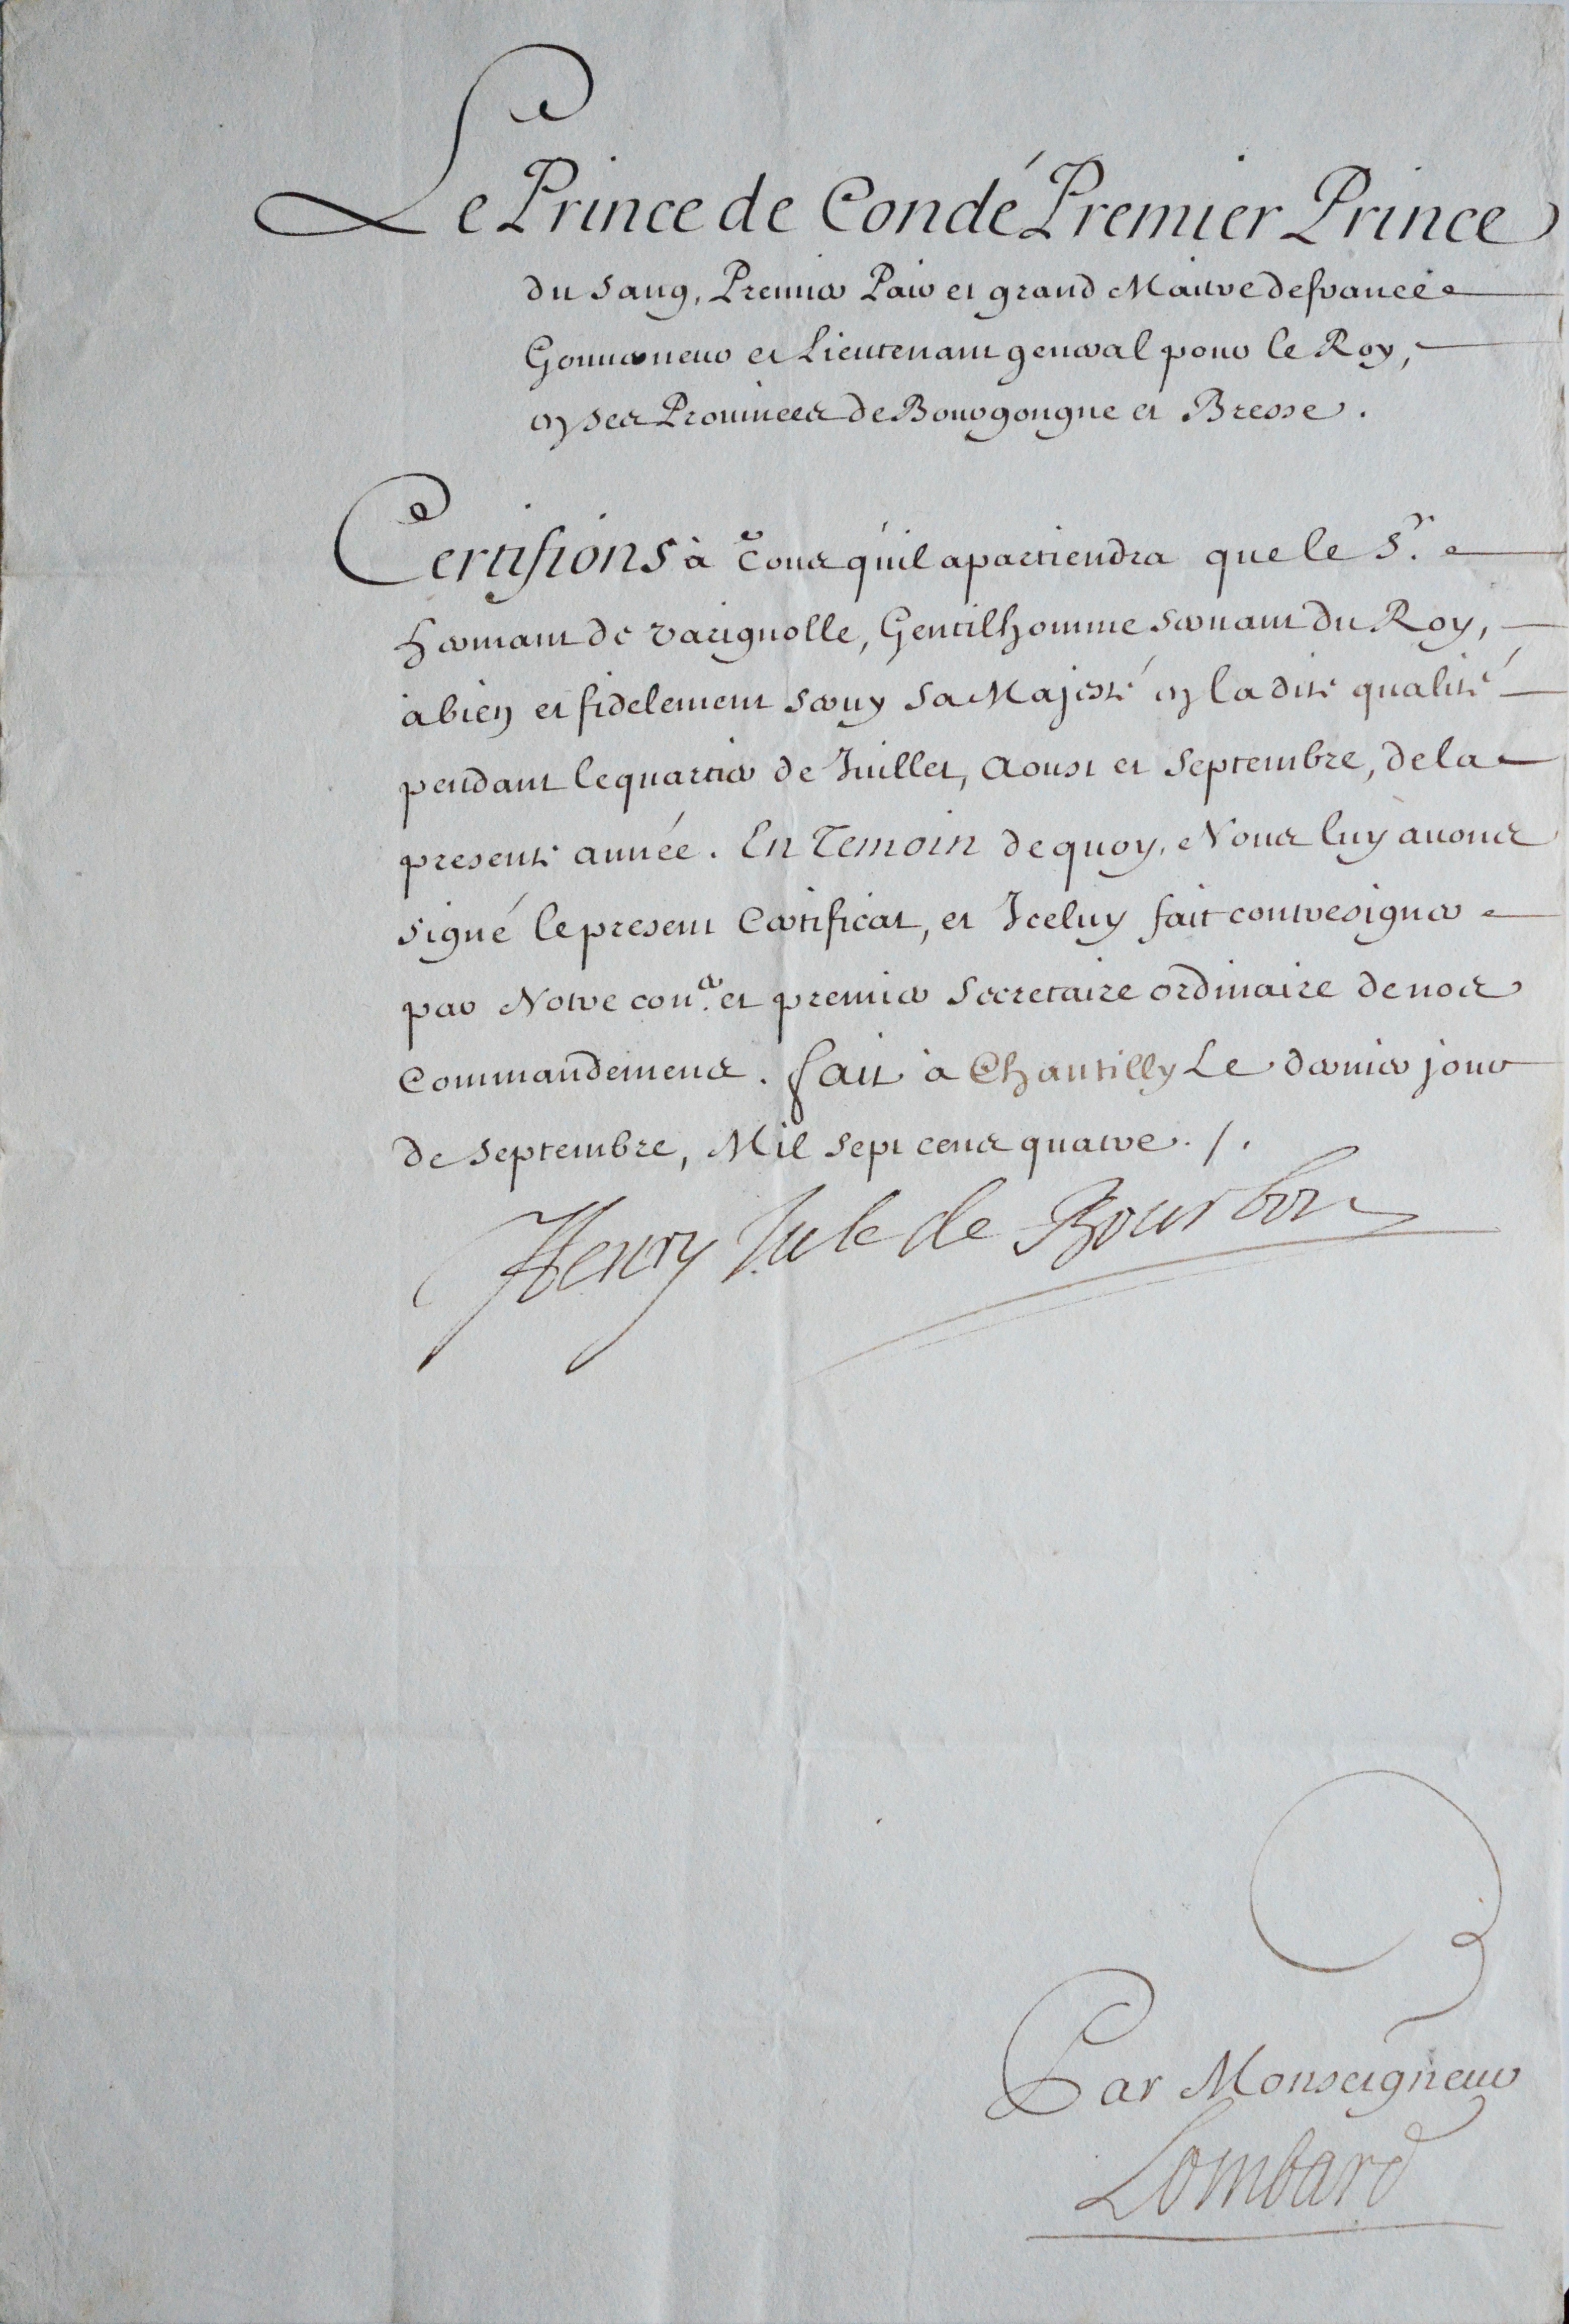 Le Prince de Condé Premier Prince
du sang, Premier Pair et grand Maitre de france
Gouuerneur et Lieutenant general pour le Roy,
en ses Prouinces de Bourgongne et Bresse.
Certifions à tous qu'il apartiendra que le Sr.
hermant de varignolle, Gentilhomme seruant du Roy,
à bien et fidelement seruy sa Majesté en la dite qualité
pendant le quartier de Juillet, Aoust et Septembre, de la
presente année. En Temoin de quoy, Nous luy auons
signé le present Certificat, et Iceluy fait contresigner
par Notre con.er et premier Secretaire ordinaire de nos
Commandemens. fait à Chantilly Le dernier jour
de Septembre, Mil sept cens quatre ./.
Henry Jule de Bourbon
Par Monseigneur
Lombard